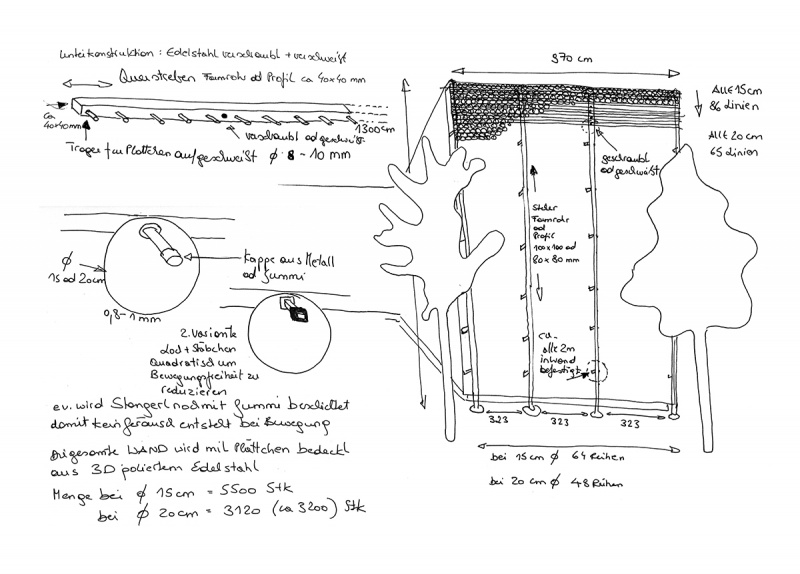 Unterkonstruktion : Edelstahl verschraubt + verschweißt
Querstreben Formrohr od Profil ca 40x40 mm
ca
40x40mm
1300cm
verschraubt od geschweißt
Träger für Plättchen aufgeschweißt ϕ 8 - 10 mm
ϕ
15 od 20cm
0,8-1mm
Kappe aus Metall
od Gummi
2. Variante
Lod + Stäbchen
Quadratisch um
Bewegungsfreiheit zu
reduzieren
ev. wird Stangerl noch mit Gummi beschichtet
damit kein Geräusch entsteht bei Bewegung
Die gesamte WAND wird mit Plättchen bedeckt
aus 3D poliertem Edelstahl
Menge bei ϕ 15cm = 5500 Stk
bei ϕ 20cm = 3120 (ca 3200) Stk
970 cm
Alle 15cm
86 Linien
Alle 20 cm
65 Linien
geschraubt
od geschweißt
Steher
Formrohr
od
Profil
100x100 od
80x80 mm
ca.
alle 2m
in Wand
befestigt
323
323
323
bei 15cm ϕ 64 Reihen
bei 20 cm ϕ 48 Reihen